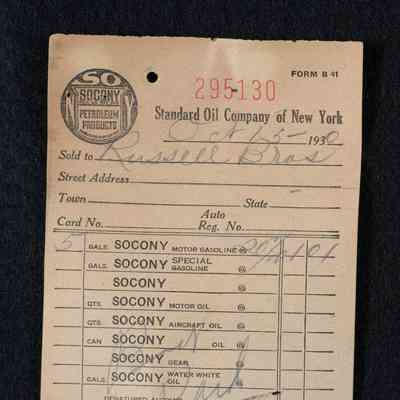 SO
SOCONY
PETROLEUM
PRODUCTS
N Y
FORM B 41
295130
Standard Oil Company of New York
Oct 15- 1930
Sold to Russell Bros
Street Address
Town State -
Card No. Auto Reg. No.
5 GALS. SOCONY MOTOR GASOLINE @ 1 01
GALS. SOCONY SPECIAL GASOLINE @
SOCONY @
QTS. SOCONY MOTOR OIL @
QTS. SOCONY AIRCRAFT OIL @
CAN SOCONY OIL @
SOCONY GEAR @
GALS. SOCONY WATER WHITE OIL @